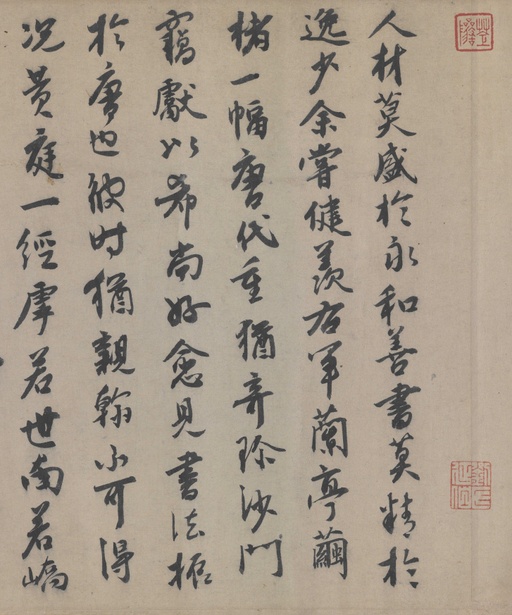 人材莫盛於永和善書莫精於
逸少余嘗健羨右軍蘭亭繭
楮一幅唐代重猶奇珍沙門
竊獻以希尚好愈見書法極
於唐也彼时猶親翰不可得
况黄庭一經虖若世南若嶠